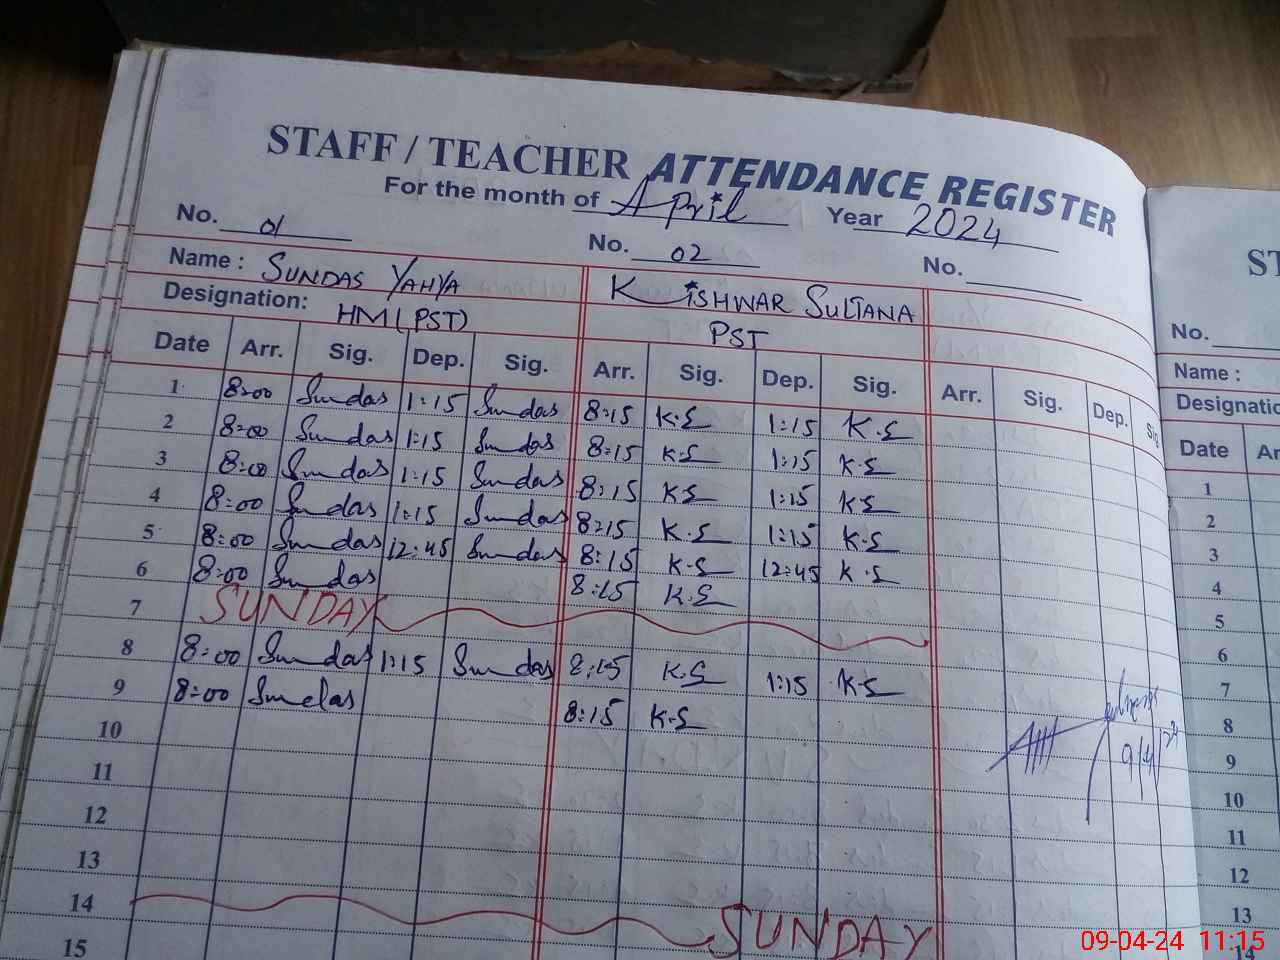 STAFF / TEACHER ATTENDANCE REGISTER
For the month of April Year 2024
No. 01 No. 02 No.
Name : SUNDAS YAHYA KISHWAR SULTANA
Designation: HM (PST) PST
Date Arr. Sig. Dep. Sig. Arr. Sig. Dep. Sig. Arr. Sig. Dep. Sig
1 8:00 Sundas 1:15 Sundas 8:15 K.S 1:15 K.S
2 8:00 Sundas 1:15 Sundas 8:15 K.S 1:15 K.S
3 8:00 Sundas 1:15 Sundas 8:15 K.S 1:15 K.S
4 8:00 Sundas 1:15 Sundas 8:15 K.S 1:15 K.S
5 8:00 Sundas 12:45 Sundas 8:15 K.S 12:45 K.S
6 8:00 Sundas 8:15 K.S
7 SUNDAY
8 8:00 Sundas 1:15 Sundas 8:15 K.S 1:15 K.S
9 8:00 Sundas 8:15 K.S
10
11
12
13
14 SUNDAY
15
9/4/24
ST
No.
Name :
Designatio
Date Ar
1
2
3
4
5
6
7
8
9
10
11
12
13
14
09-04-24 11:15